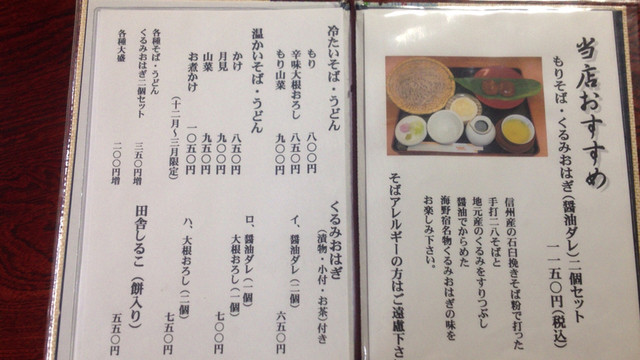 当店おすすめ
もりそば・くるみおはぎ(醤油ダレ)二個セット
一一五〇円(税込)
信州産の石臼挽きそば粉で打った
手打二八そばと
地元産のくるみをすりつぶし
醤油でからめた
海野宿名物くるみおはぎの味を
お楽しみ下さい。
そばアレルギーの方はご遠慮下さ
冷たいそば・うどん
もり 八〇〇円
辛味大根おろし 八五〇円
もり山菜 九〇〇円
温かいそば・うどん
かけ 八五〇円
月見 九〇〇円
山菜 九五〇円
お煮かけ 一〇五〇円
(十二月〜三月限定)
各種そば・うどん
くるみおはぎ二個セット 三五〇円増
各種大盛 二〇〇円増
くるみおはぎ
(漬物・小付・お茶)付き
イ、醤油ダレ(二個) 六五〇円
ロ、醤油ダレ(一個)
大根おろし(一個) 七〇〇円
ハ、大根おろし(二個) 七五〇円
田舎しるこ(餅入り) 五五〇円